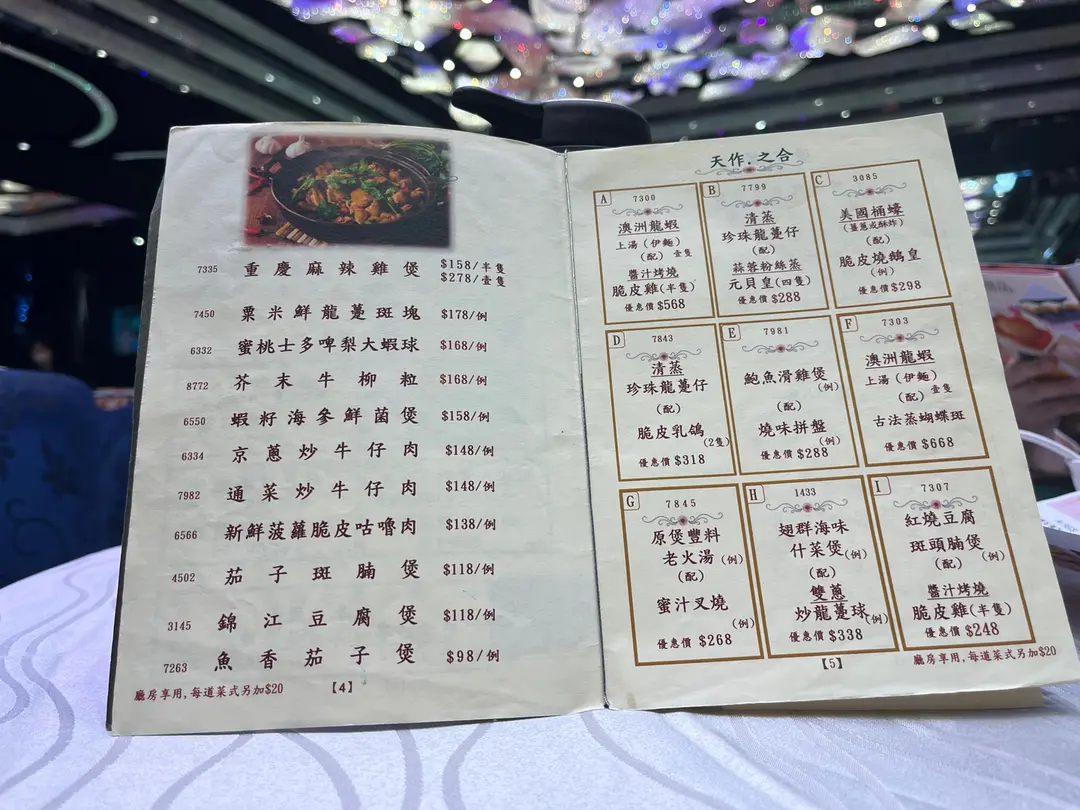 7335 重慶麻辣雞煲 $158/半隻
$278/壹隻
7450 粟米鮮龍躉斑塊 $178/例
6332 蜜桃士多啤梨大蝦球 $168/例
8772 芥末牛柳粒 $168/例
6550 蝦籽海參鮮菌煲 $158/例
6334 京蔥炒牛仔肉 $148/例
7982 通菜炒牛仔肉 $148/例
6566 新鮮菠蘿脆皮咕嚕肉 $138/例
4502 茄子斑腩煲 $118/例
3145 錦江豆腐煲 $118/例
7263 魚香茄子煲 $98/例
廳房享用,每道菜式另加$20
【4】
天作.之合
A 7300
澳洲龍蝦
上湯（伊麵）
(配) 壹隻
醬汁烤燒
脆皮雞(半隻)
優惠價 $568
B 7799
清蒸
珍珠龍躉仔
(配)
蒜蓉粉絲蒸
元貝皇(四隻)
優惠價 $288
C 3085
美國桶蠔
(薑蔥或酥炸)
(配)
脆皮燒鵝皇
(例)
優惠價 $298
D 7843
清蒸
珍珠龍躉仔
(配)
脆皮乳鴿
(2隻)
優惠價 $318
E 7981
鮑魚滑雞煲
(例)
(配)
燒味拼盤
(例)
優惠價 $288
F 7303
澳洲龍蝦
上湯（伊麵）
(配) 壹隻
古法蒸蝴蝶斑
優惠價 $668
G 7845
原煲豐料
老火湯 (例)
(配)
蜜汁叉燒
(例)
優惠價 $268
H 1433
翅群海味
什菜煲(例)
(配)
雙蔥
炒龍躉球(例)
優惠價 $338
I 7307
紅燒豆腐
斑頭腩煲
(配) (例)
醬汁烤燒
脆皮雞(半隻)
優惠價 $248
【5】
廳房享用,每道菜式另加$20